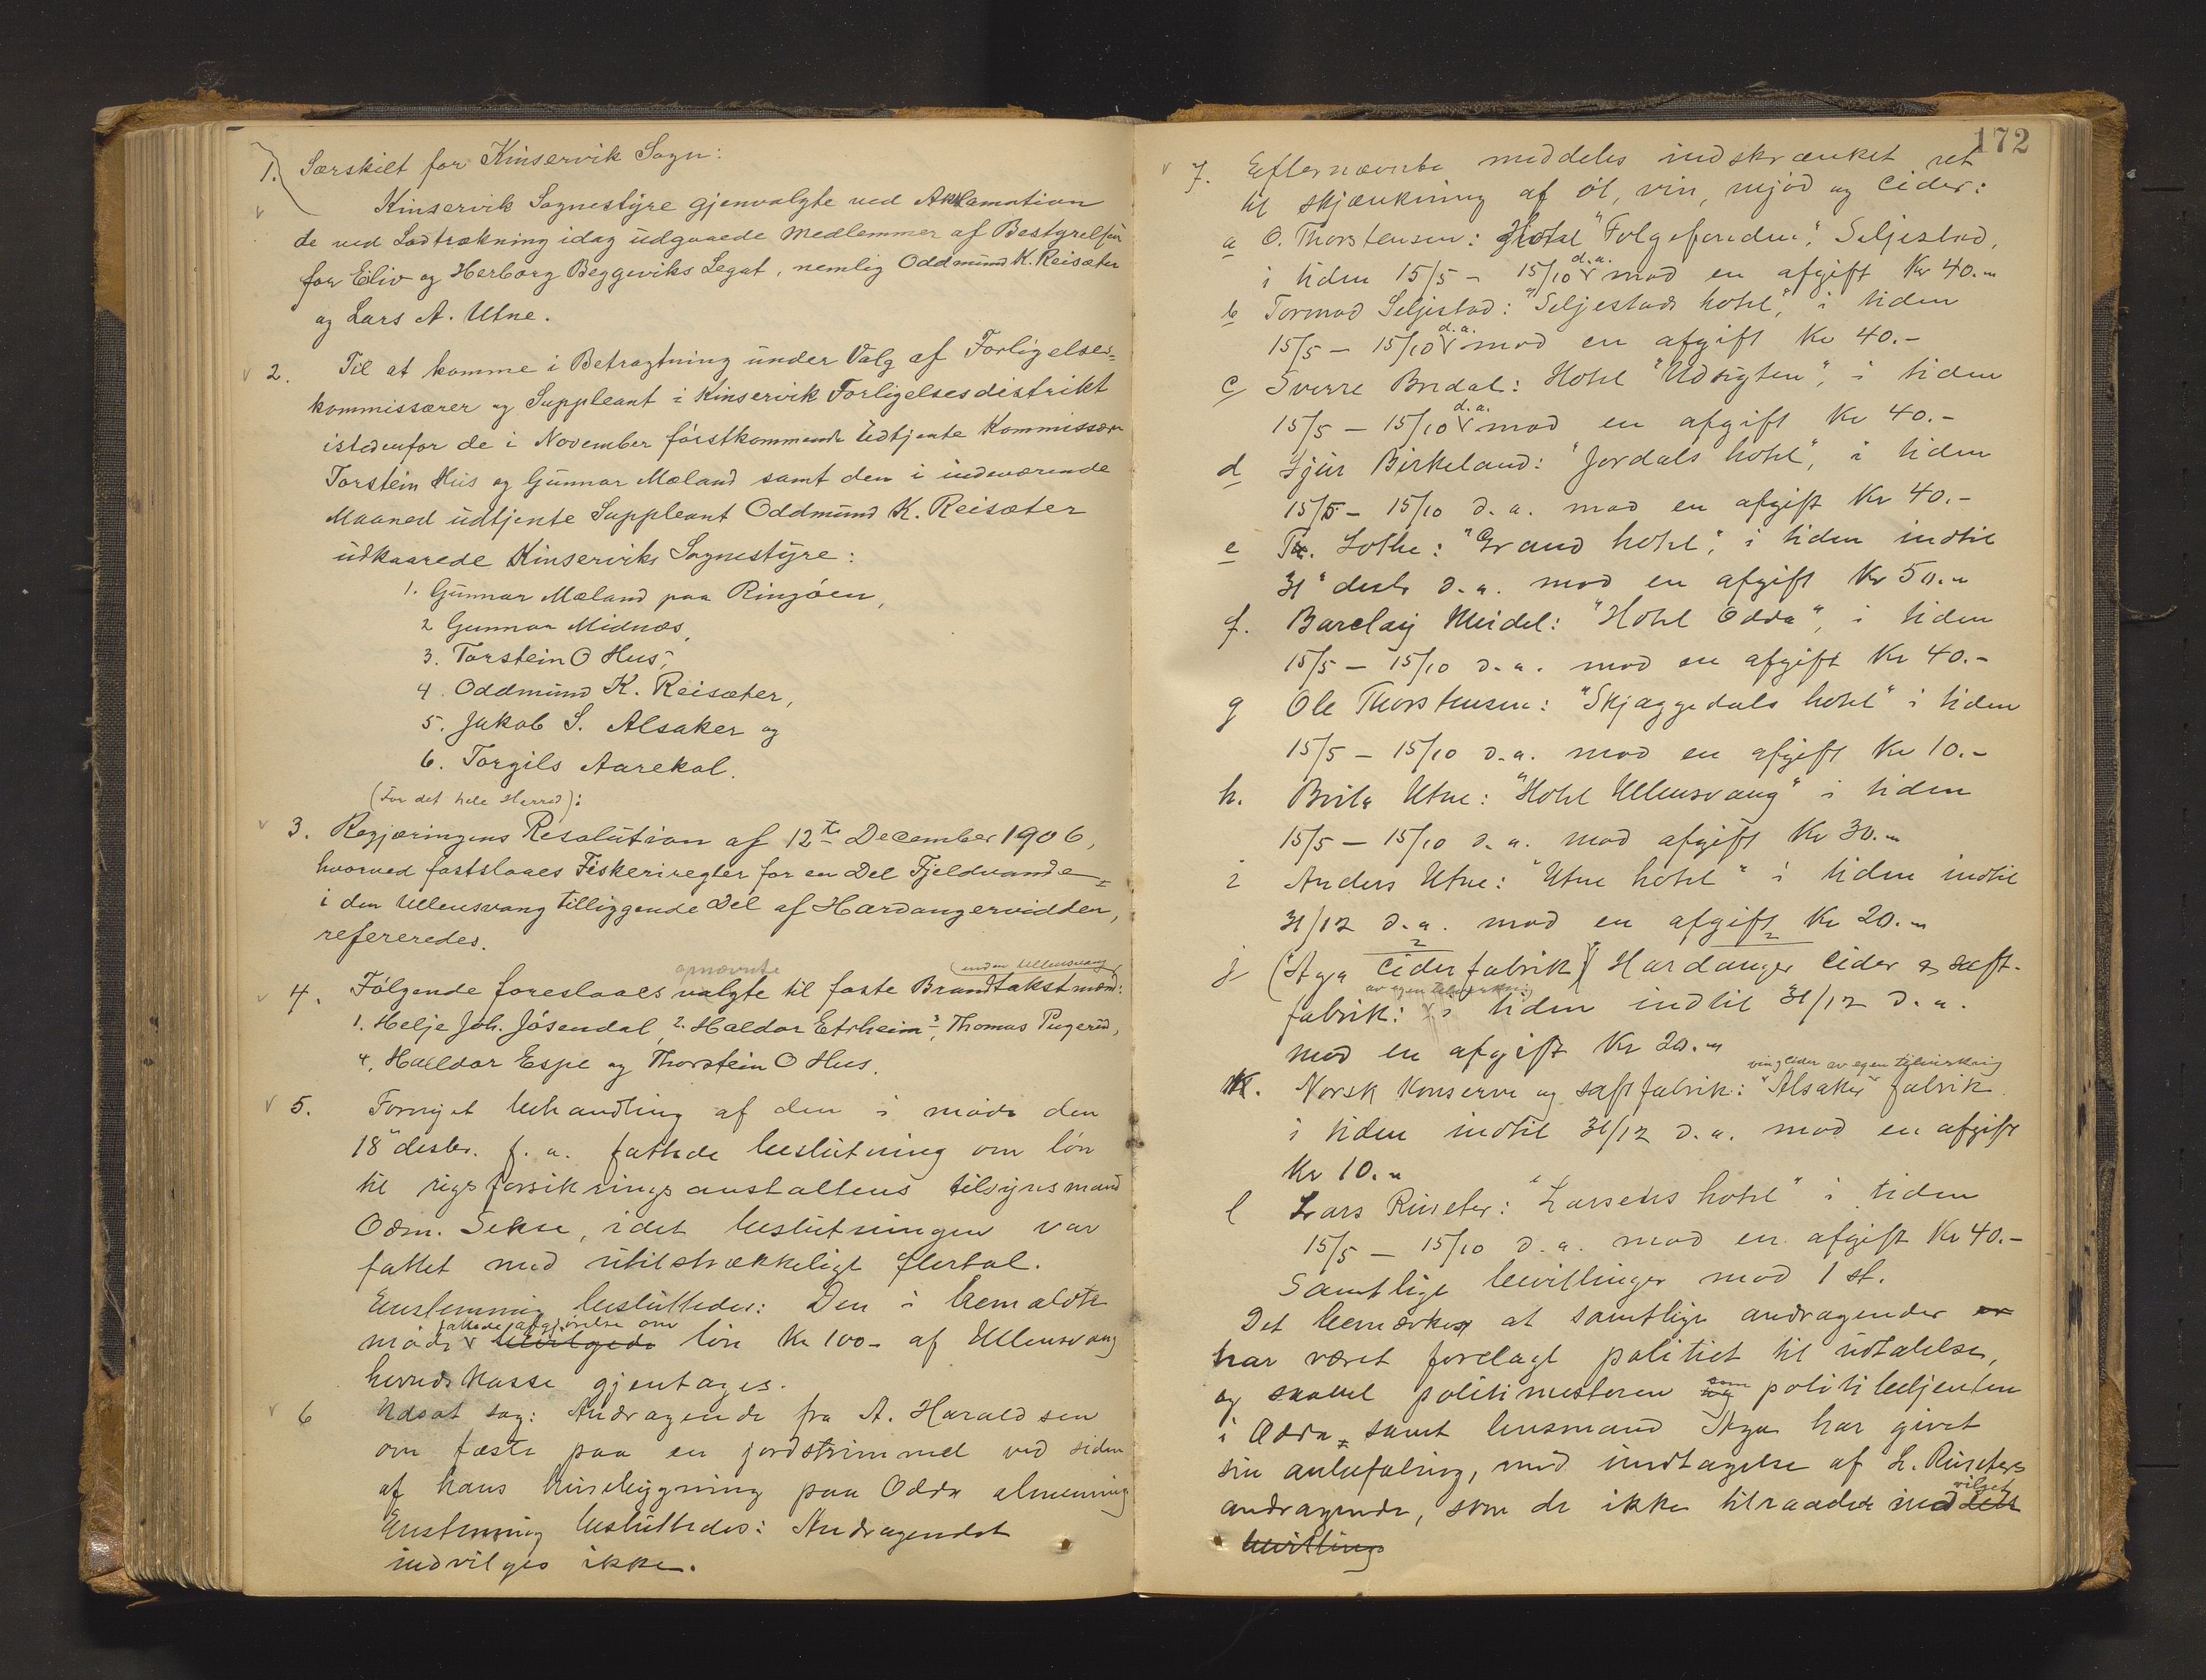 1. Særskilt for Kinservik Sogn:
Kinservik Sognestyre gjenvalgte ved Akklamation
de ved Lodtrækning idag udgaaede Medlemmer af Bestyrelsen
for Eiliv og Herborg Beggeviks Legat, nemlig Oddmund K. Reisæter
og Lars A. Utne.
2. Til at komme i Betragtning under Valg af Forligelses=
kommissærer og Suppleant i Kinservik Forligelsesdistrikt
istedenfor de i November førstkommende udtjente Kommissærer
Torstein Hus og Gunnar Mæland samt den i indeværende
Maaned udtjente Suppleant Oddmund K. Reisæter
udkaarede Kinserviks Sognestyre:
1. Gunnar Mæland paa Ringøen,
2 Gunnar Midnæs,
3. Torstein O Hus,
4. Oddmund K. Reisæter,
5. Jakob S. Alsaker og
6. Torgils Aarekol.
(For det hele Herred):
3. Regjæringens Resolution af 12te December 1906,
hvorved fastslaaes Fiskeriregler for en Del Fjeldvande
i den Ullensvang tilliggende Del af Hardangervidden,
refereredes.
opnævnte (under Ullensvang
4. Følgende foreslaaes valgte til faste Brandtakstmænd:
1. Helje Joh. Jøsendal, 2. Haldor Etrheim, 3. Thomas Pugerud,
4. Halldor Espe og Thorstein O Hus.
5. Fornyet behandling af den i møde den
18" desbr. f. a. fattede beslutning om løn
til rigsforsikringsanstaltens tilsynsmand
Odm. Sekse, idet beslutningen var
fattet med utilstrækkeligt flertal.
Enstemmig besluttedes: Den i bemældte
fattede afgjørelse om
møde bevilgede løn Kr 100- af Ullensvang
herredskasse gjentages.
6 Udsat sag: Andragende fra A. Haraldsen
om fæste paa en jordstrimmel ved siden
af hans husebygning paa Odda almenning
Enstemmig besluttedes: Andragendet
indvilges ikke.
172
7. Efternævnte meddeles indskrænket ret
til skjænkning af øl, vin, mjød og cider:
a O. Thorstensen: Hotel "Folgefonden", Seljestad,
d.a.
i tiden 15/5 - 15/10 mod en afgift Kr 40.-
b Tormod Seljestad: "Seljestads hotel", i tiden
d.a.
15/5 - 15/10 mod en afgift Kr 40.-
c Sverre Bredal: Hotel "Udsigten", i tiden
d.a.
15/5 - 15/10 mod en afgift Kr 40.-
d Sjur Birkeland: "Jordals hotel", i tiden
15/5 - 15/10 d.a. mod en afgift Kr 40.-
e Lothe: "Grand hotel", i tiden indtil
31" desbr d.a. mod en afgift Kr 50.-
f. Barclay Meidel: "Hotel Odda", i tiden
15/5 - 15/10 d.a. mod en afgift Kr 40.-
g Ole Thorstensen: "Skjæggedals hotel" i tiden
15/5 - 15/10 d.a. mod en afgift Kr 10.-
h. Brita Utne: "Hotel Ullensvang" i tiden
15/5 - 15/10 d.a. mod afgift Kr 30.-
i Anders Utne: "Utne hotel" i tiden indtil
31/12 d.a. mod en afgift Kr 20.-
j (Aga Ciderfabrik) Hardanger Cider & saft-
av egen tilvirkning
fabrik: i tiden indtil 31/12 d.a.
mod en afgift Kr 20.-
vin, cider av egen tilvirkning
k. Norsk Konserve og saftfabrik: "Alsaker" fabrik
i tiden indtil 31/12 d.a. mod en afgift
Kr 10.-
l Lars Riseter: "Larsens hotel" i tiden
15/5 - 15/10 d.a. mod en afgift Kr 40.-
Samtlige bevillinger mod 1 st.
Det bemærkes at samtlige andragender er
har været forelagt politiet til udtalelse,
og saavel politimesteren som politibetjenten
i Odda samt lensmand Aga har givet
sin anbefaling, med undtagelse af L. Riseters
vilget
andragende, som de ikke tilraader ind
bevilling